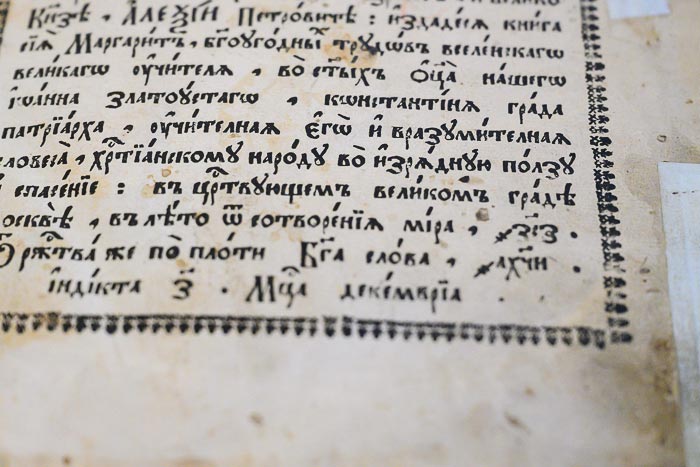 Кнзѣ, Алеѯі́и Петро́вичѣ: и҆здадесѧ кни́га
сїѧ̀ Маргари́тъ, бг҃оуго́дныѝ трꙋдѡ́въ вселе́нскагѡ
вели́кагѡ ᲂу҆чи́телѧ, во ст҃ы́хъ Ѻ҆ц҃а̀ на́шегѡ
і҆ѡа́нна златоꙋ́стагѡ, кѡнстанті́нѧ гра́да
патрїа́рха, ᲂу҆чи́телнаѧ є҆гѡ̀ и҆ вразꙋми́телнаѧ
словеса̀, хрⷭ҇тїа́нскомꙋ наро́дꙋ во и҆зрѧ́днꙋю по́лзꙋ
и҆ спасе́нїе: въ црⷭ҇твꙋющемъ вели́комъ гра́дѣ
москвѣ̀, въ лѣ́то ѿ сотворе́нїѧ мі́ра, ҂зс҃з.
Ѿ ржⷭ҇тва́ же по пло́ти Бг҃а сло́ва, ҂ахч҃и.
і҆ндїкта з҃. Мцⷭ҇а деке́мврїа.